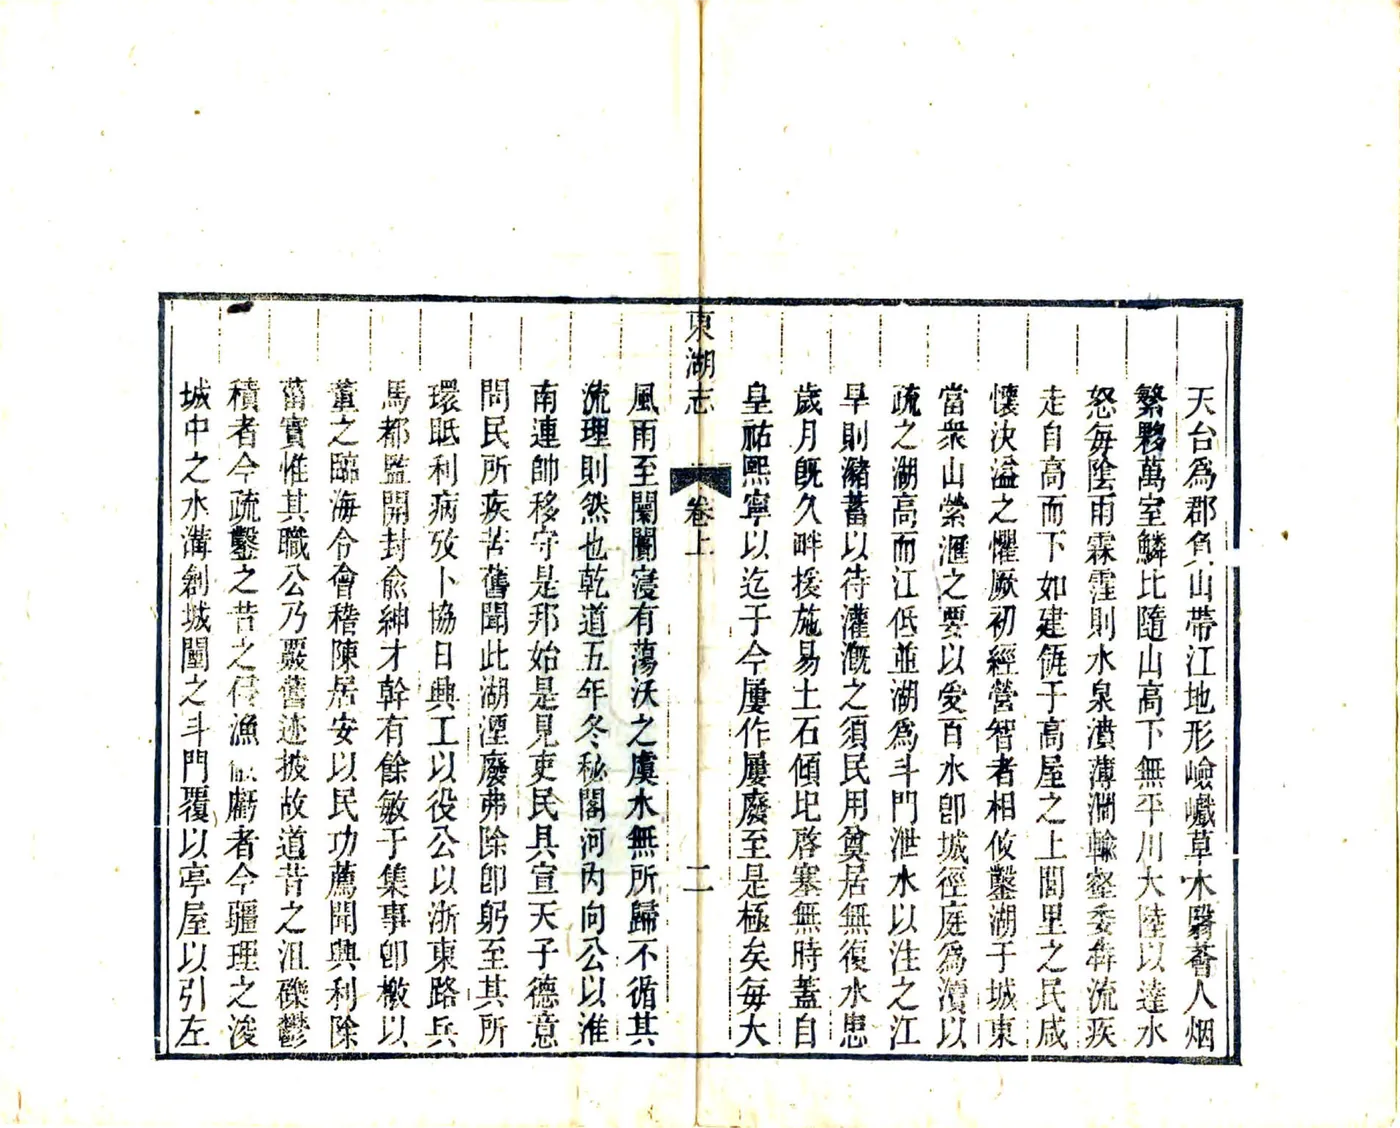 天台爲郡負山帶江地形嶮巇草木翳薈人烟
繁夥萬室鱗比隨山高下無平川大陸以達水
怒每陰雨霖霪則水泉瀵薄澗輸壑委犇流疾
走自高而下如建瓴于高屋之上閭里之民咸
懷決溢之懼厥初經營智者相攸鑿湖于城東
當衆山縈滙之要以受百水卽城徑庭爲瀆以
疏之湖高而江低並湖爲斗門泄水以注之江
旱則瀦蓄以待灌漑之須民用奠居無復水患
歲月旣久畔援施易土石傾圯啓塞無時蓋自
皇祐熙寧以迄于今屢作屢廢至是極矣每大
東湖志 卷上 二
風雨至闤闠寖有蕩沃之虞水無所歸不循其
流理則然也乾道五年冬秘閣河内向公以淮
南連帥移守是邦始是見吏民具宣天子德意
問民所疾苦舊聞此湖湮廢弗除卽躬至其所
環眂利病攷卜協日興工以役公以浙東路兵
馬都監開封兪紳才幹有餘敏于集事卽檄以
董之臨海令會稽陳居安以民功薦聞興利除
菑實惟其職公乃覈舊迹披故道昔之沮礫鬱
積者今疏鑿之昔之侵漁 虧者今疆理之浚
城中之水溝創城闉之斗門覆以亭屋以引左